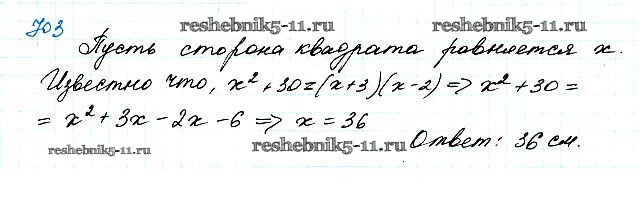 703
reshebnik5-11.ru reshebnik5-11.ru
Пусть сторона квадрата равняется x.
Известно что, x² + 30 = (x+3)(x-2) => x² + 30 =
= x² + 3x - 2x - 6 => x = 36
reshebnik5-11.ru reshebnik5-11.ru Ответ: 36 см.